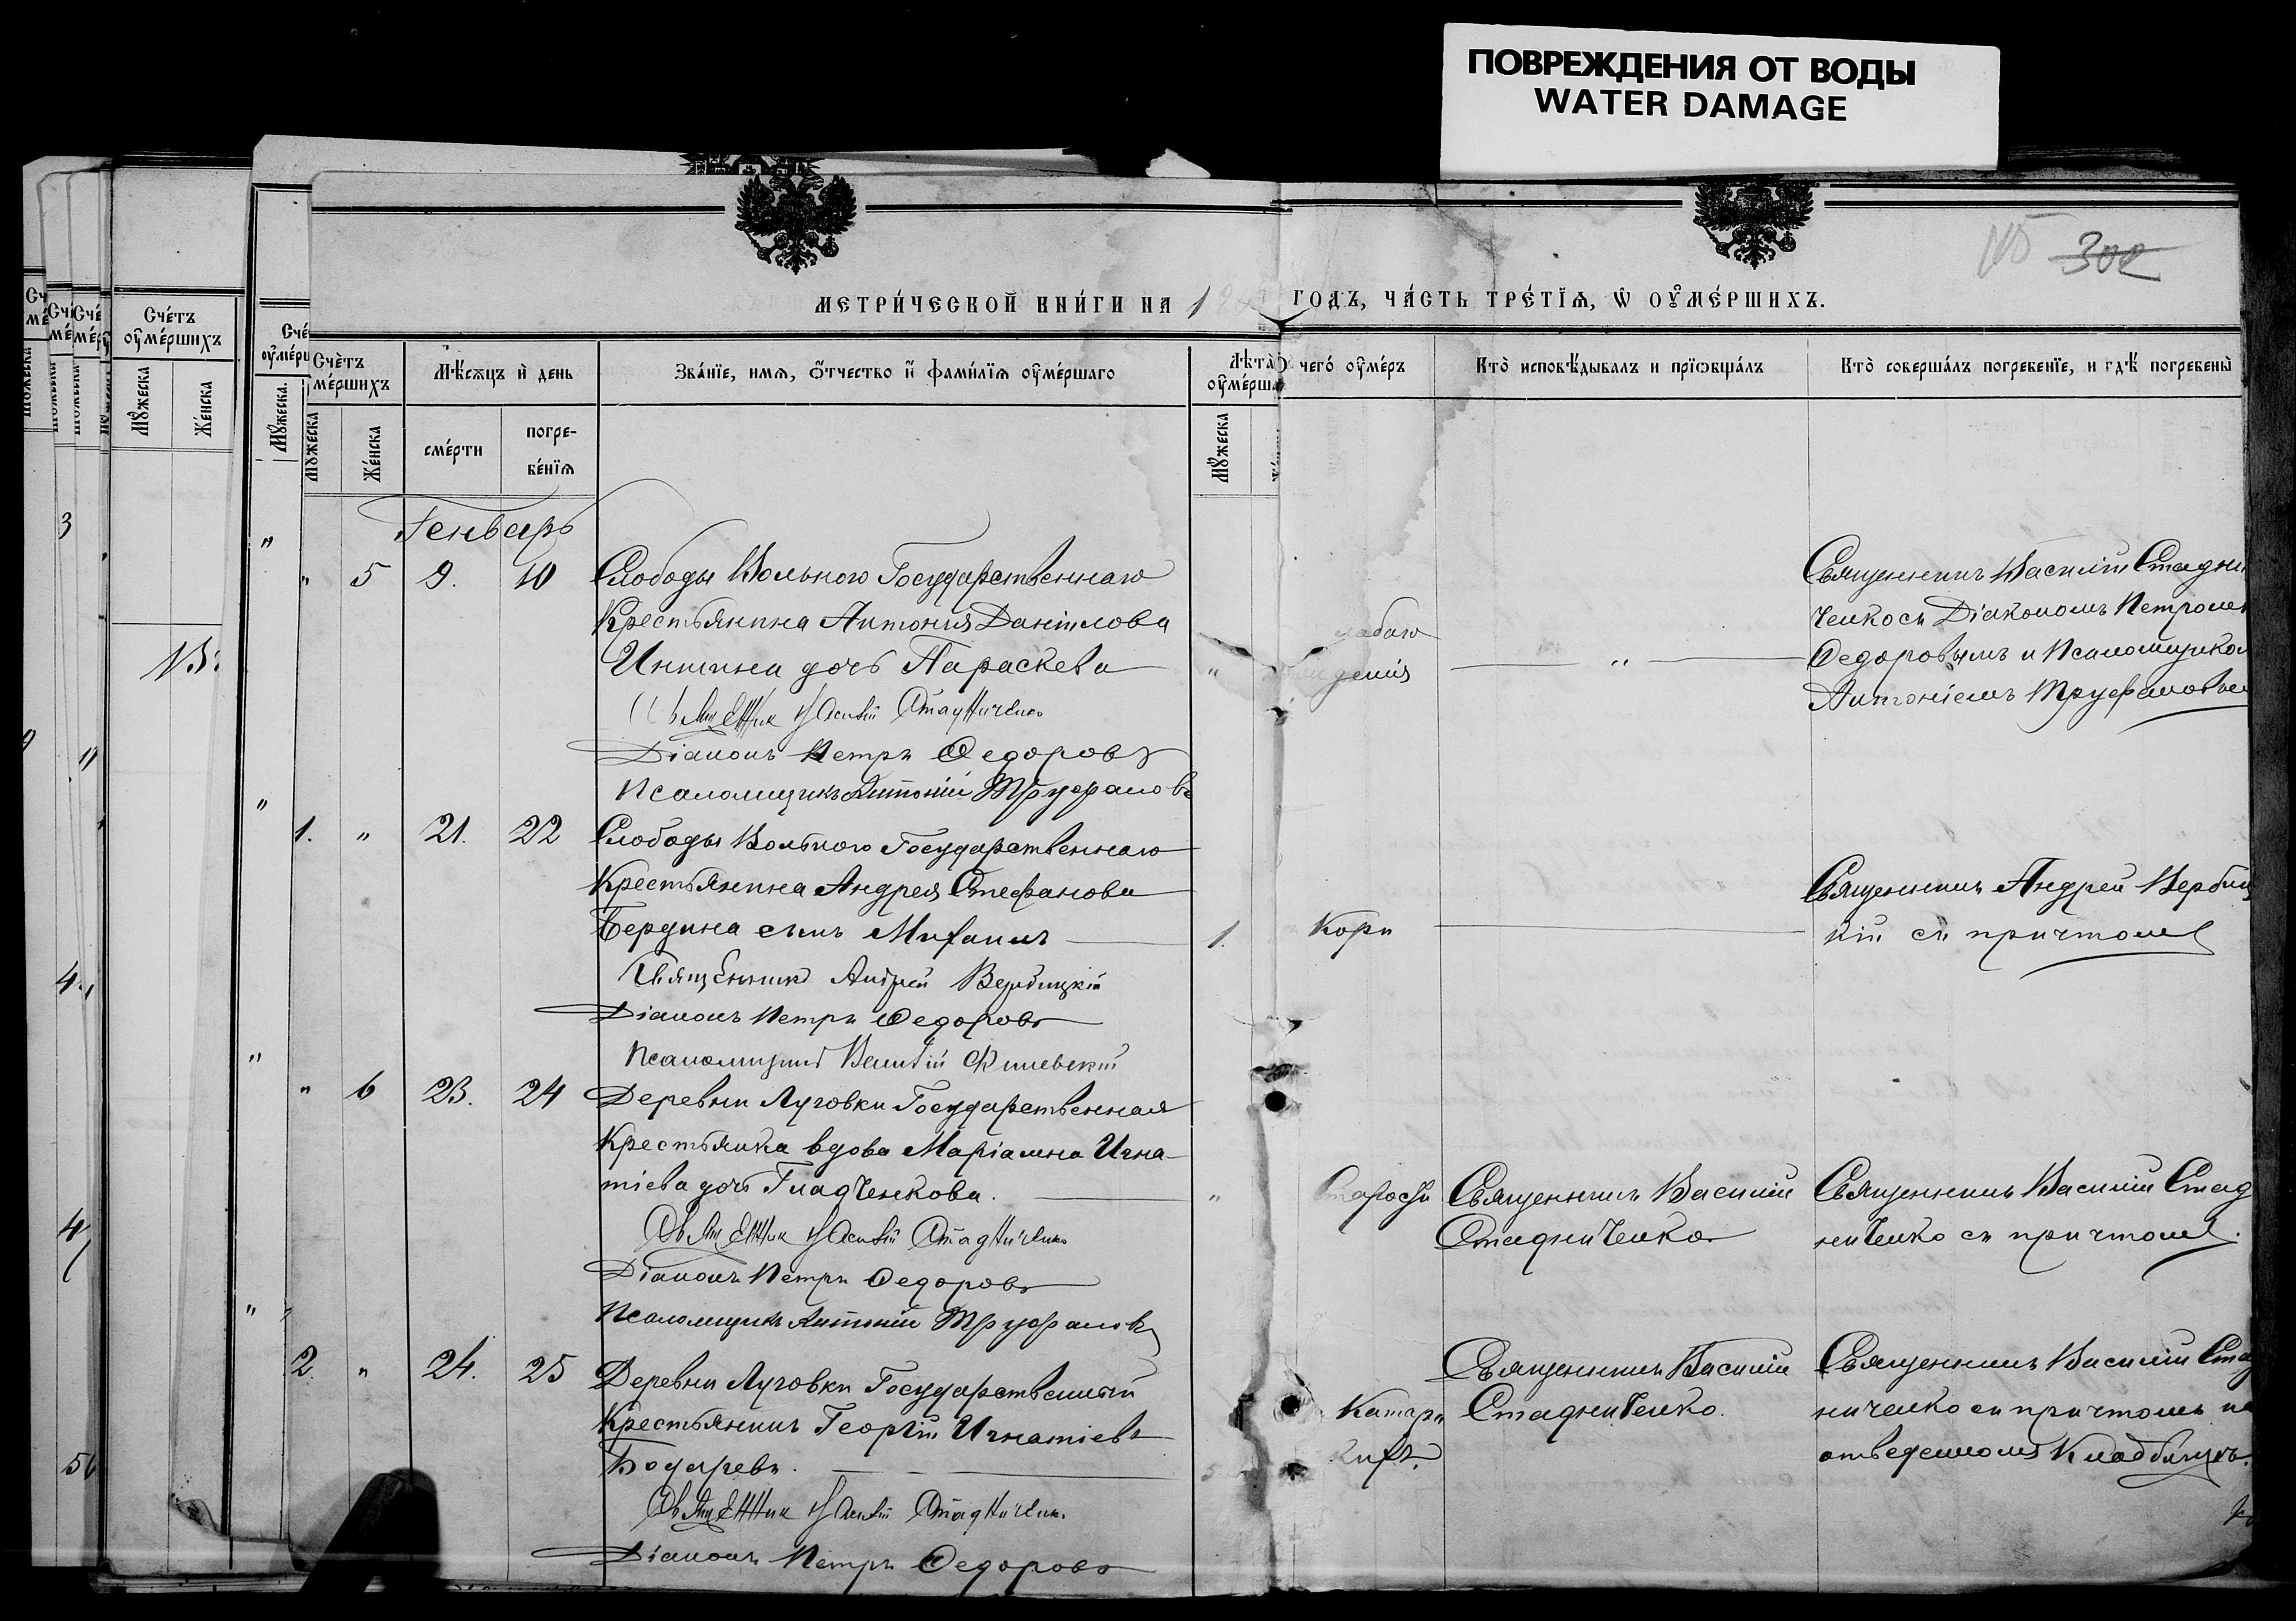 ПОВРЕЖДЕНИЯ ОТ ВОДЫ
WATER DAMAGE
300
МЕТРИ́ЧЕСКОЙ КНИ́ГИ НА 1
ГОДЪ, ЧА́СТЬ ТРЕ́ТЇѦ, Ѿ ОУ҆МЕ́РШИХЪ.
Сче́тъ оу҆ме́ршихъ
Мꙋ́жеска
Же́нска
Счѐтъ
ме́ршихъ
Мꙋ́жеска
Же́нска
Мѣ́сѧцъ и҆ день
сме́рти
погре-
бе́нїѧ
Зва́нїе, имѧ, ѻ҆́тчество и҆ фами́лїѧ оу҆ме́ршаго
Лѣ́та
оу҆ме́рша
Мꙋ́жеска
чего̀ оу҆ме́ръ
Кто̀ исповѣ́дывалъ и прїѡбща́лъ
Кто̀ соверша́лъ погребенїе, и гдѣ́ погребены̀
Генварь
" 5 9. 10 Слободы Вольного Государственнаго
Крестьянина Антонія Даніилова
дочь Параскева "
Священник Василій Стадниченко
Діаконъ Петръ Ѳедоровъ
Псаломщикъ Антоній Труфановъ
слабаго
"
Священникъ Василій Стадни
ченко съ Діакономъ Петромъ
Ѳедоровымъ и Псаломщико
Антоніемъ Труфановы
1. " 21. 22 Слободы Вольного Государственнаго
Крестьянина Андрея Стефанова
Бердина сынъ Михаилъ 1.
Священникъ Андрей Вербицкій
Діаконъ Петръ Ѳедоровъ
Псаломщикъ
Кори
Священникъ Андрей Вербиц
кій съ причтомъ
" 6 23. 24 Деревни Луговки Государственная
Крестьянка вдова Маріамна Игна-
тіева дочь Гладченкова. "
Священник Василій Стадниченко
Діаконъ Петръ Ѳедоровъ
Псаломщикъ Антоній Труфановъ
Старости
Священникъ Василій
Стадниченко
Священникъ Василій Стад
ниченко съ причтомъ.
2. " 24. 25 Деревни Луговки Государственный
Крестьянинъ Георгій Игнатіевъ
Бочаревъ.
Священник Василій Стадниченко
Діаконъ Петръ Ѳедоровъ
Священникъ Василій
Стадниченко.
Священникъ Василій Стад
ниченко съ причтомъ на
отведенномъ Кладбищѣ.